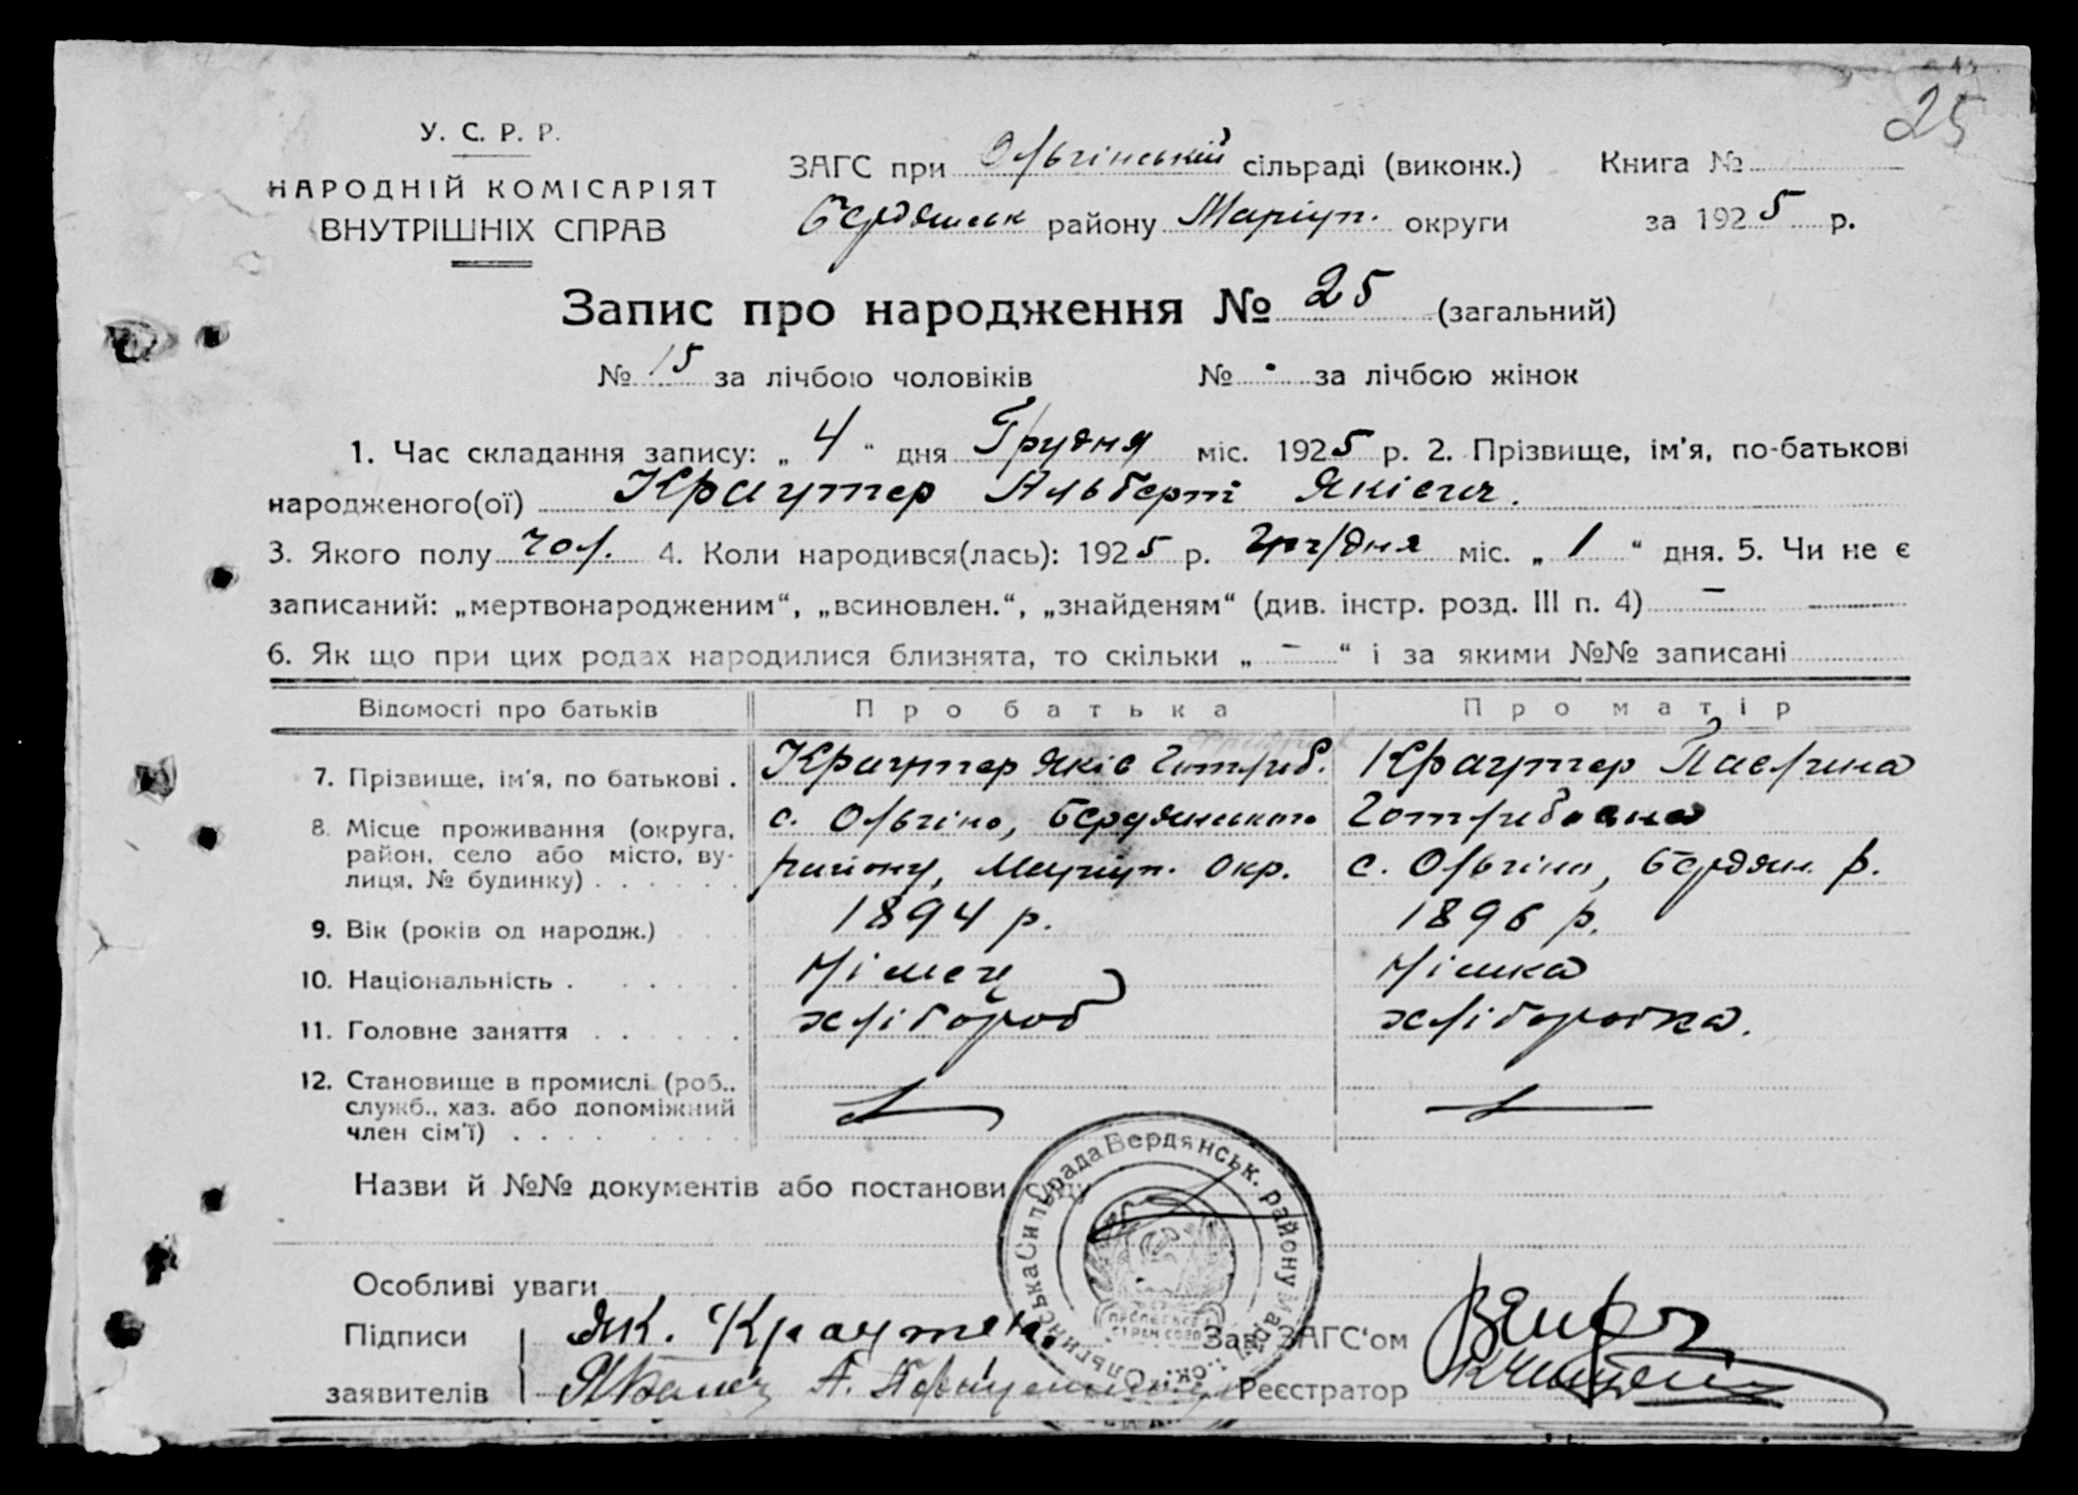 25
У. С. Р. Р.
НАРОДНІЙ КОМІСАРІЯТ
ВНУТРІШНІХ СПРАВ
ЗАГС при Ольгінській сільраді (виконк.) Книга №
Бердянськ району Маріуп. округи за 1925 р.
Запис про народження № 25 (загальний)
№ 15 за лічбою чоловіків № - за лічбою жінок
1. Час складання запису: „ 4 “ дня Грудня міс. 1925 р. 2. Прізвище, ім'я, по-батькові
народженого(ої) Краутер Альберт Яківич.
3. Якого полу чол. 4. Коли народився(лась): 1925 р. грудня міс. „ 1 “ дня. 5. Чи не є
записаний: „мертвонародженим“, „всиновлен.“, „знайденям“ (див. інстр. розд. III п. 4) —
6. Як що при цих родах народилися близнята, то скільки „ — “ і за якими №№ записані
Відомості про батьків Про батька Про матір
7. Прізвище, ім'я, по батькові . Краутер Яків Готліб. Краутер Павлина
Готлібовна
8. Місце проживання (округа, район, село або місто, вулиця, № будинку) с. Ольгіно, Бердянського
району, Маріуп. Окр. с. Ольгіно, Бердян. р.
9. Вік (років од народж.) 1894 р. 1896 р.
10. Національність . Німець Німка
11. Головне заняття хлібороб хлiборобка.
12. Становище в промислі (роб.,
служб., хаз. або допоміжний
член сім'ї) — —
Назви й №№ документів або постанови суду
Ольгинська Сильрада Бердянськ. району Маріуп. ок.
Особливі уваги
Підписи Як. Краутер Зав. ЗАГС'ом
заявителів Реєстратор